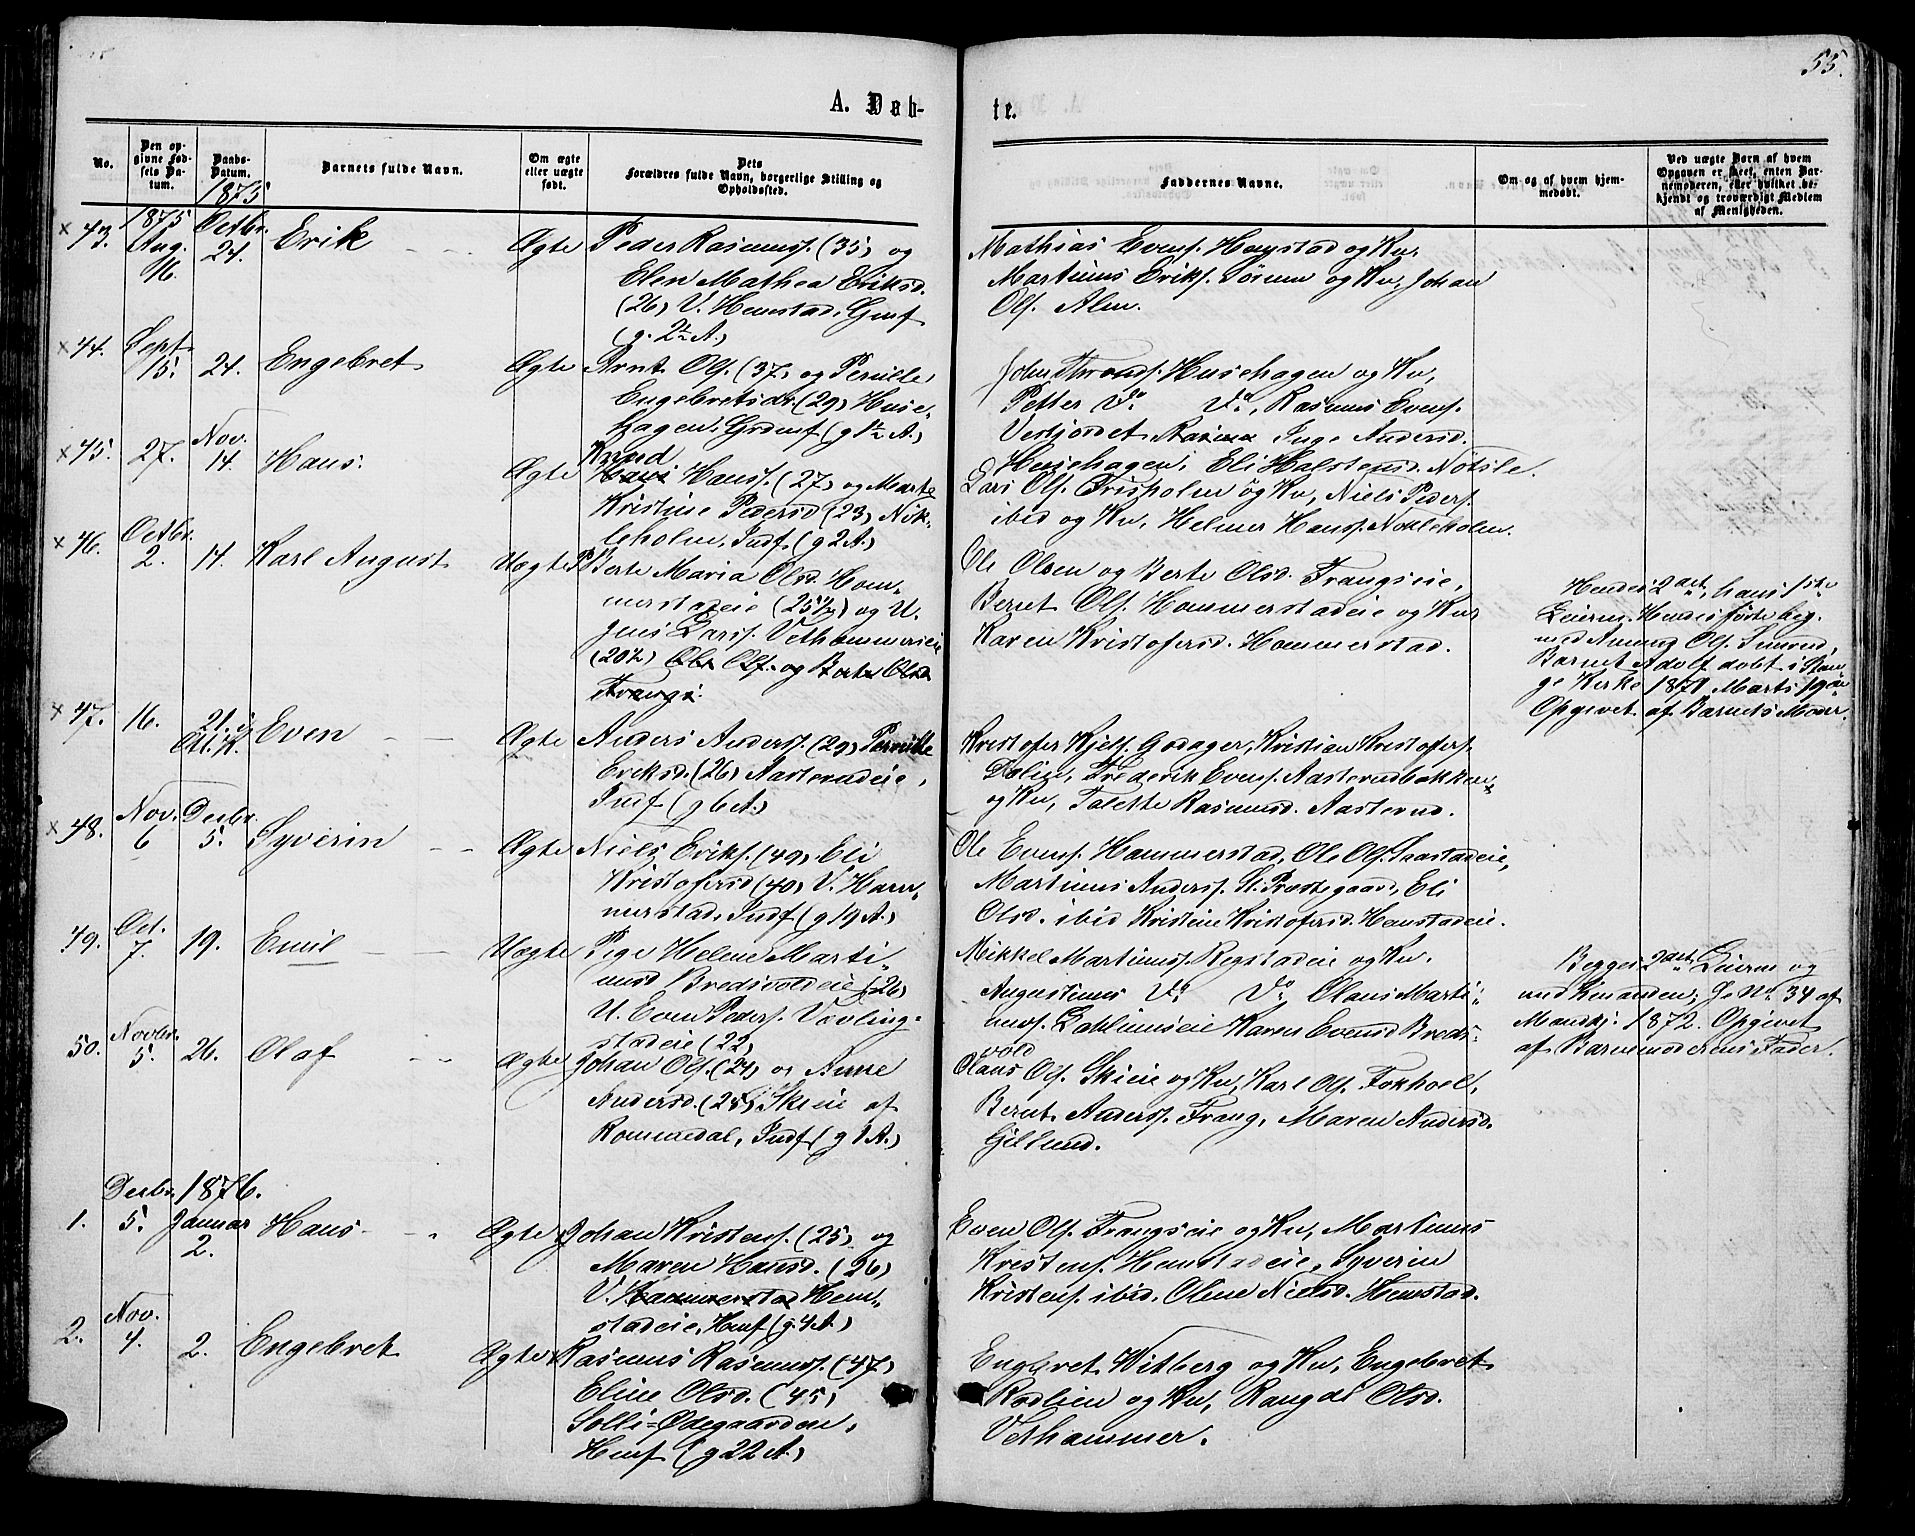 55.
A. Døb-
te.
No.
Den op-
givne Fød-
sels Da-
tum.
Daabs-
Datum.
Barnets fulde Navn.
Om ægte
eller uægte
født.
Dets
Forældres fulde Navn, borgerlige Stilling og
Opholdssted.
Faddernes Navne.
Om og af hvem hjem-
medøbt.
Ved uægte Børn af hvem
Opgaven er skeet, enten Bar-
nemoderen, eller hvilket be-
kjendt og troværdigt Medlem
af Menigheden.
1875
x 43. 1875 Aug. 16. Octbr. 24. Erik Ægte Peder Rasmuss. (35) og
Elen Mathea Eriksd.
(26) V. Hemstad, Gmf
(g. 2½ A.)
Mathias Evens. Hemstad og Kv.
Martinus Eriks. Sørum og Kv, Johan
Ols. Alm.
x 44. Sept. 15. 24. Engebret Ægte Arnt Ols. (37) og Pernille
Engebretsdr. (29) Huse-
hagen, Grdmf (g 1½ A.)
John Thronds. Husehagen og Kv,
Petter Do Do, Rasmus Evens.
Vestjordet Inge Andersd.
Husehagen, Eli Halstensd. Nøtsle.
x 45. 27. Nov. 14. Hans. Ægte Knud
Hans Hanss. (27) og Marte
Kristine Pedersd (23) Nøk-
leholm, Indf. (g 2 A.)
Lars Ols. Frisholm og Kv, Niels Peders.
ibid og Kv, Helmer Hanss. Nøkleholm.
x 46. Octbr. 2. 14. Karl August Uægte P Berte Maria Olsd. Hom-
merstadeie (25½) og U.
Jens Larss. Vethammerseie
(20½) Ole Ols. og Berte Olsd
Frangs.
Ole Olsen og Berte Olsd. Frangseie,
Bernt Ols. Hommerstadeie og Kv
Karen Kristofersd. Hommerstad.
Hendes 2det, hans 1ste
Leierm. Hendes første beg.
med Amung Ols. Imsrud,
Barnet Adolf døbt i Stan-
ge Kirke 1871 Marts 19de
Opgivet af Barnets Moder.
x 47. 16. 21. i Ott. K. Even Ægte Anders Anderss. (29) Pernille
Eriksd. (26) Aasterudeie,
Indf (g 6 A)
Kristofer Kjels. Godager, Kristian Kristofers.
Dølin, Frederik Evens. Aasterudbakken
og Kv, Talette Rasmusd. Aasterud.
x 48. Nov. 6 Decbr. 5. Syverin Ægte Niels Eriks. (49) Eli
Kristofersd (40) V. Ham-
merstad, Indf (g 19 A.)
Ole Evens. Hammerstad, Ole Ols. Saastadeie,
Martinus Anderss. St. Præstegaard, Eli
Olsd. ibid Kristine Kristofersd. Hemstadeie.
49. Oct. 7. 19. Emil Uægte Pige Helene Marti-
nusd Bredsvoldeie (26)
U. Even Peders. Vovling-
stadeie (22)
Mikkel Martinuss. Registadeie og Kv.
Augustinus Do Do, Claus Marti-
nuss. Dahlumseie Karen Evensd Breds-
vold
Begges 2det Leierm og
med hinanden; Se No. 34 af
Mandkj. 1872. Opgivet
af Barnemoderens Fader.
50. Novbr. 5. 26. Olaf Ægte Johan Ols. (24) og Anne
Andersd. (25) Skieie af
Rommedal, Indf (g 1 A.)
Olaus Ols. Skieie og Kv, Karl Ols. Fokhoel,
Bernt Anderss. Frang, Maren Andersd.
Gjellund.
1876.
1. Decbr. 5. Januar 2. Hans Ægte Johan Kristens. (25) og
Maren Hansd. (26)
V. Hammerstad Hem-
stadeie, Hmf (g. 4 A.)
Even Ols. Frangseie og Kv, Martinus
Kristens. Hemstadeie, Syverin
Kristens. ibid. Oline Nielsd. Hemstad.
2. Nov. 4. 2. Engebret Ægte Rasmus Rasmuss. (47)
Eline Olsd. (45)
Solli-Ødegaardeie,
Hmf (g 22 A.)
Engebret Witberg og Kv, Engebret
Rødlien og Kv, Rangdi Olsd.
Vethammer.